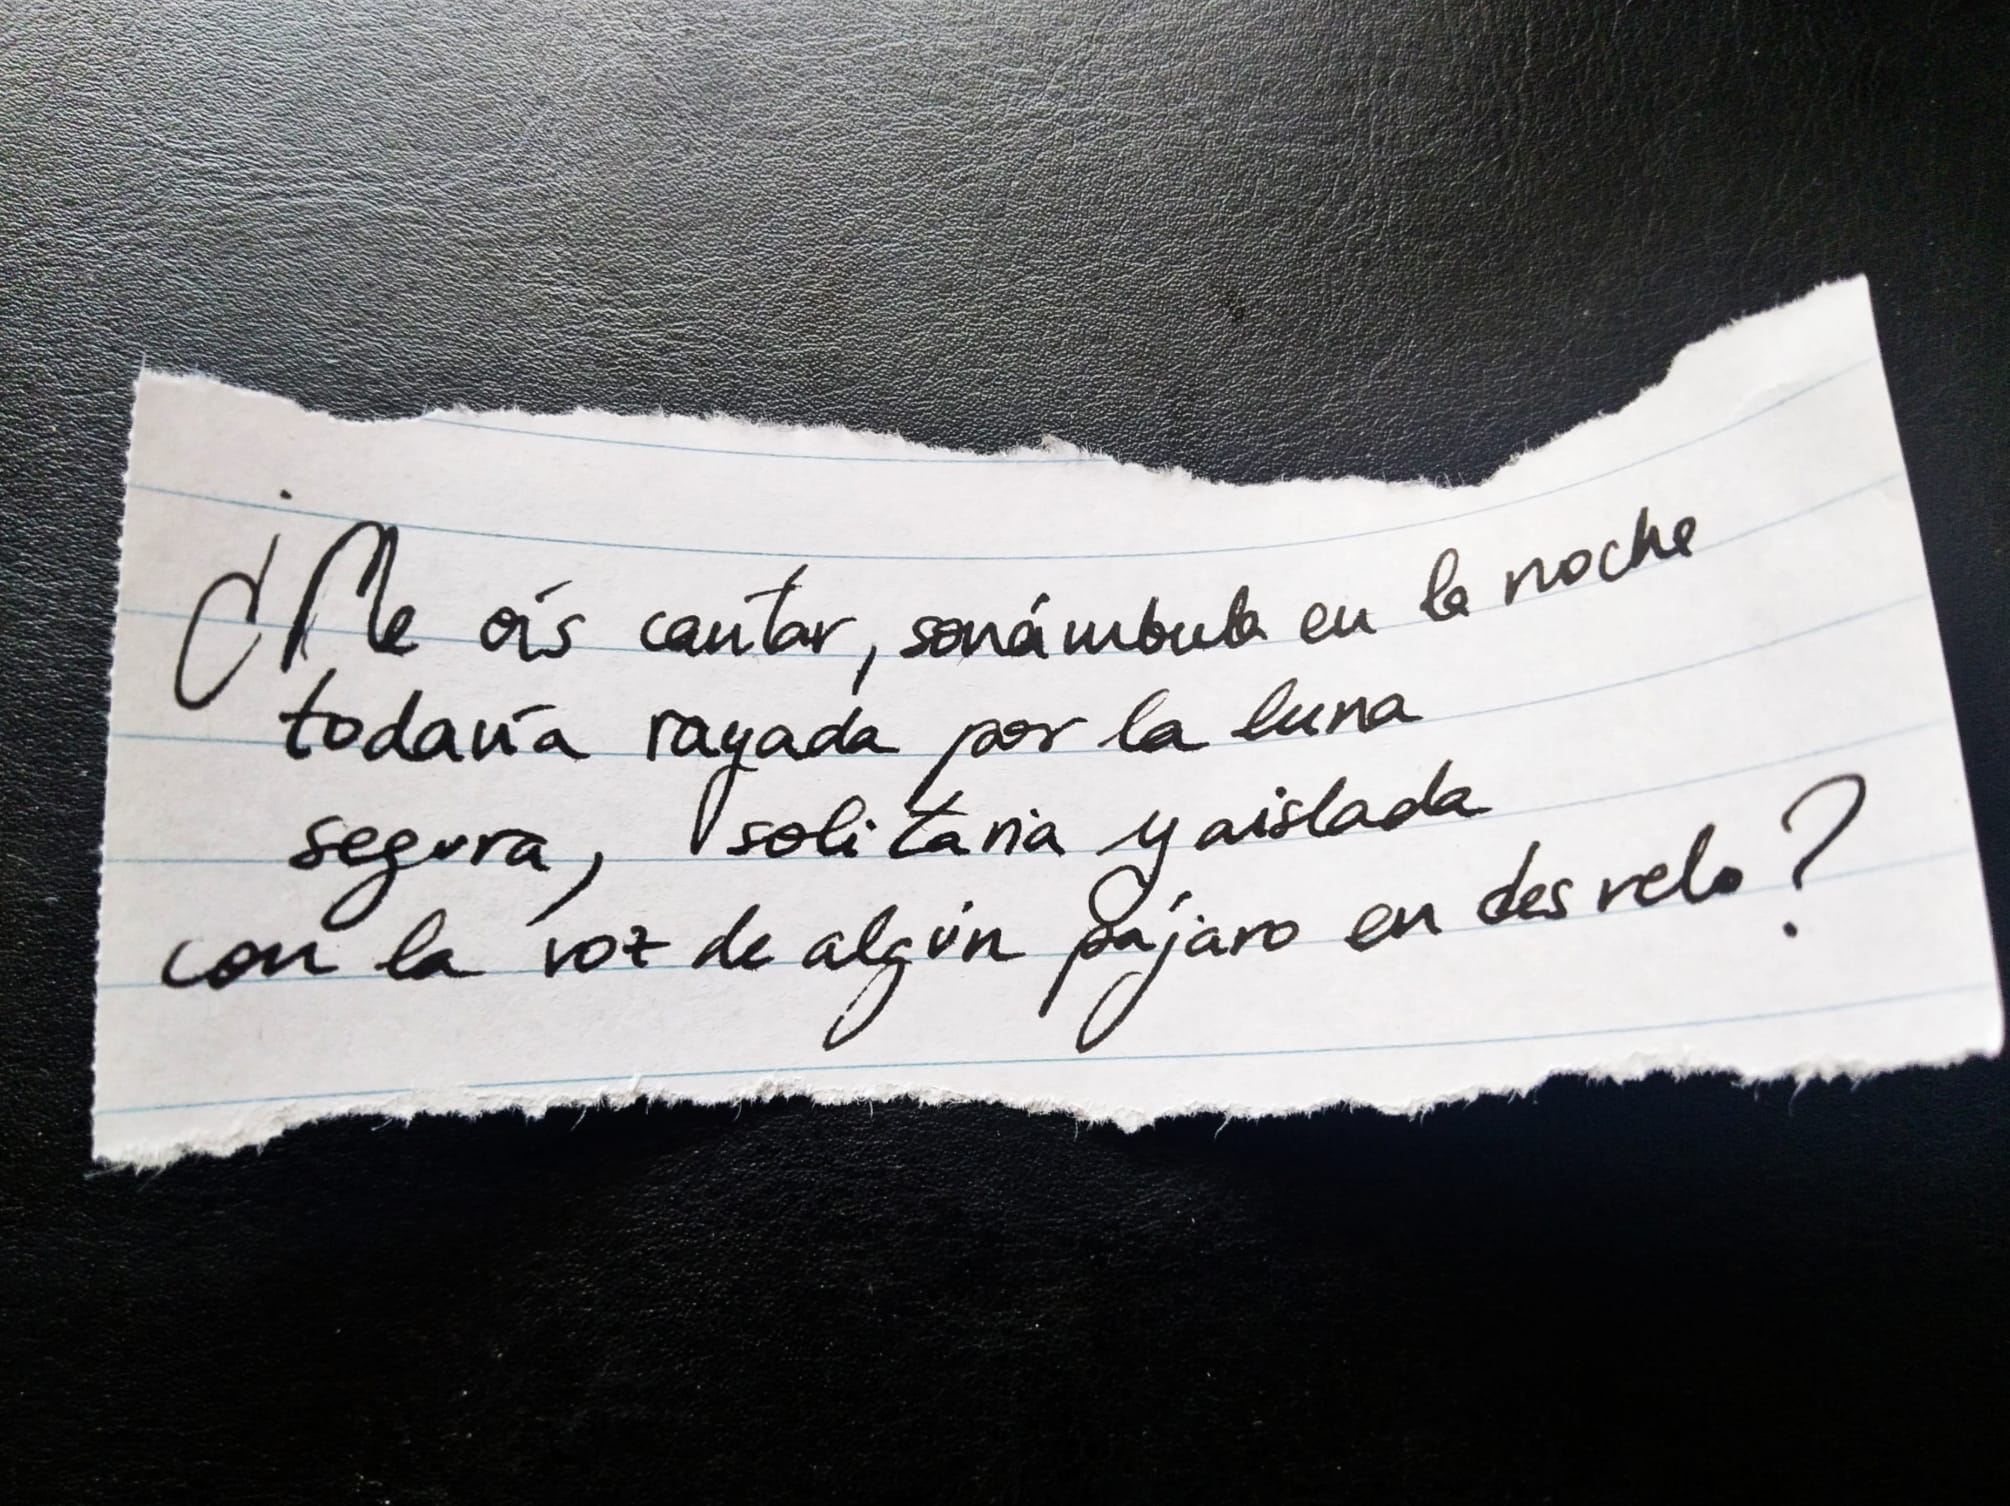 ¿Me oís cantar, sonámbula en la noche
todavía rayada por la luna
segura, solitaria y aislada
con la voz de algún pájaro en desvelo?